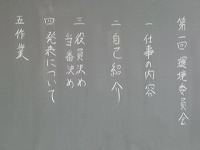 第一回 環境委員会
一 仕事の内容
二 自己紹介
三 役員決め
当番決め
四 発表について
五 作業